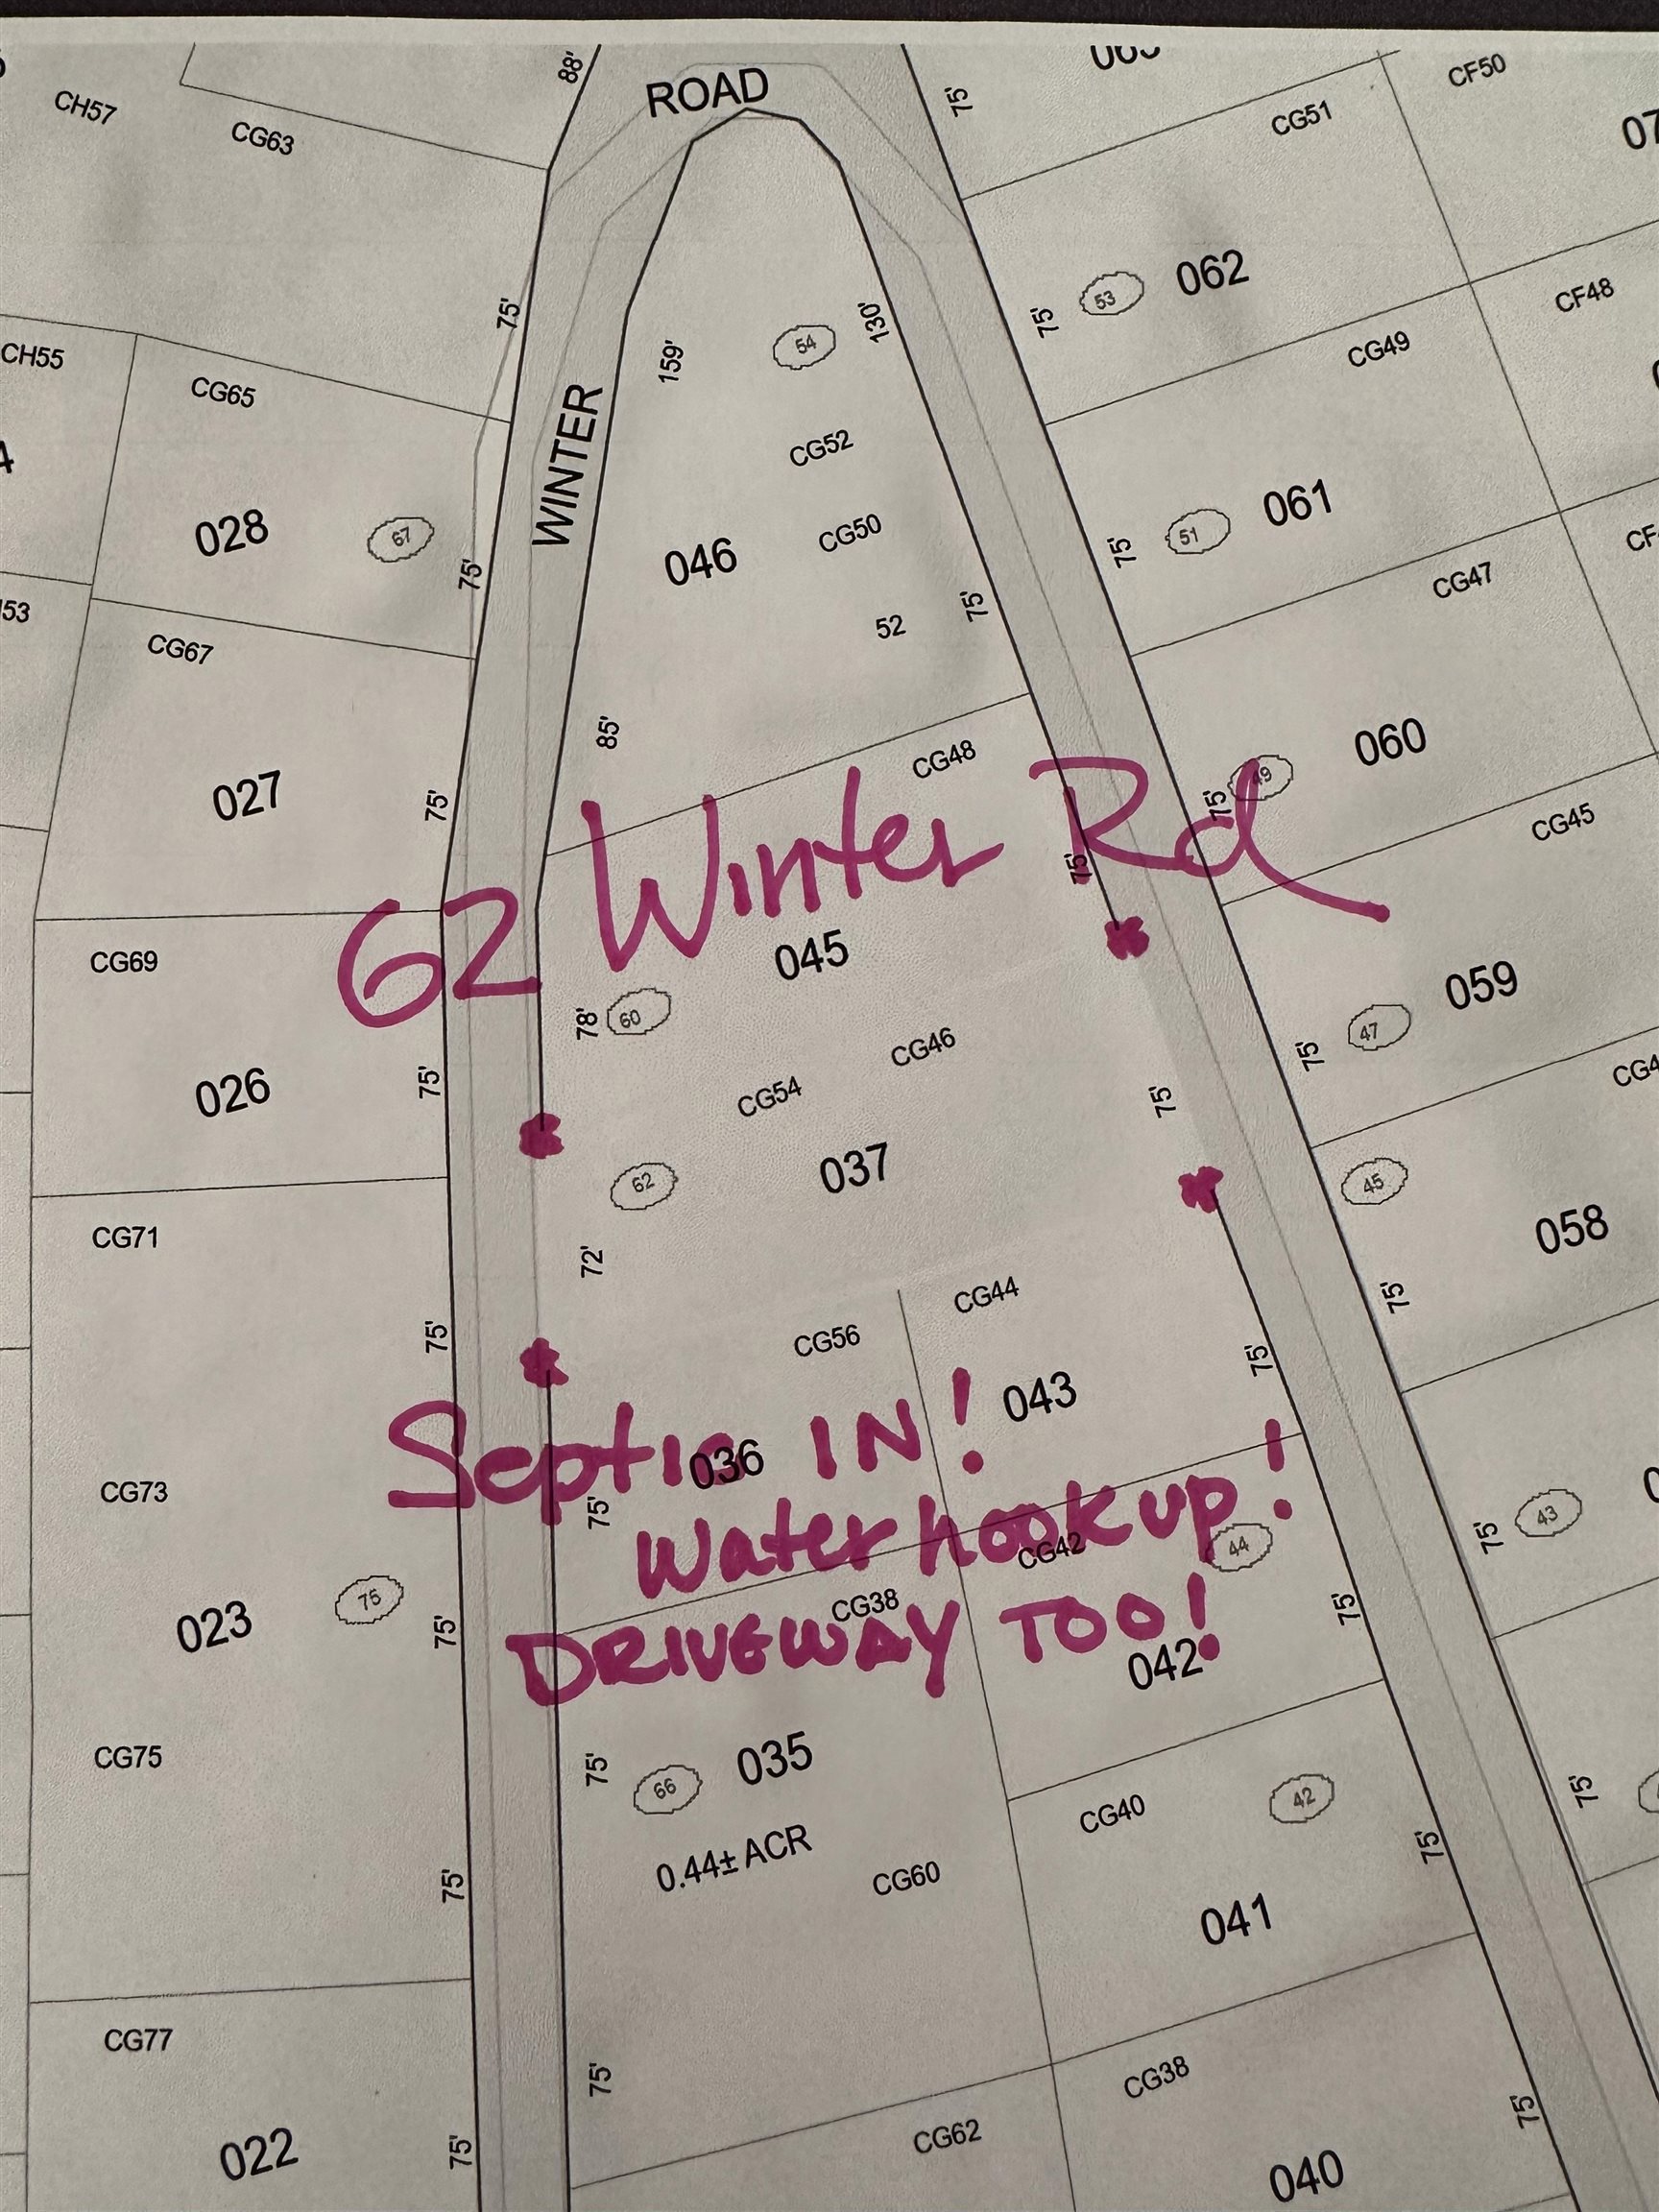 ROAD
88'
75'
CF50
CH57
CG63
CG51
062
53
75'
75'
CF48
CG49
54
130'
159'
CH55
CG65
WINTER
CG52
028
67
046
CG50
061
51
75'
75'
CG47
52
75'
CG67
85'
CG48
060
49
75'
027
75'
CG45
62 Winter Rd
75'
CG69
045
059
60
78'
47
75'
CG46
026
75'
CG54
75'
037
62
45
058
CG71
72'
CG44
75'
75'
CG56
75'
043
Septic IN!
036
CG73
75'
Water hook up!
CG42
44
43
75'
CG38
DRIVEWAY TOO!
75'
023
75
75'
042
035
75'
66
CG75
CG40
42
75'
0.44± ACR
75'
CG60
75'
041
CG77
75'
CG38
CG62
75'
022
75'
040